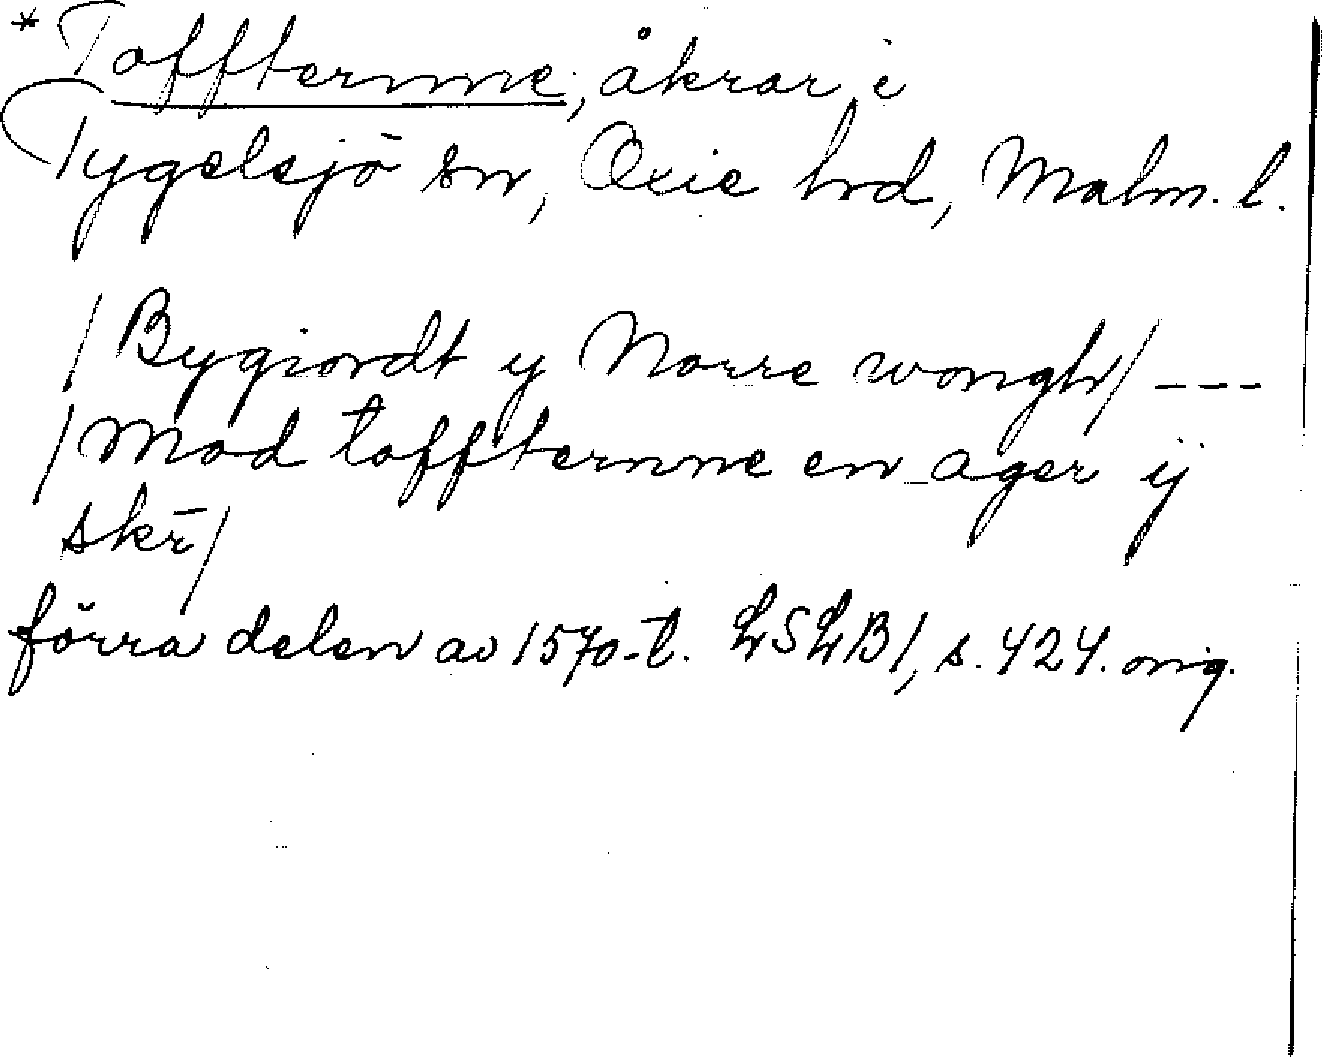 * Toffternne, åkrar i
Tygelsjö sn, Oxie hrd, Malm. l.
/Bygiordt y Norre wongh/ ---
/Mod toffternne en ager ij
skr̄/
förra delen av 1570-t. LSLB 1, s. 424. orig.